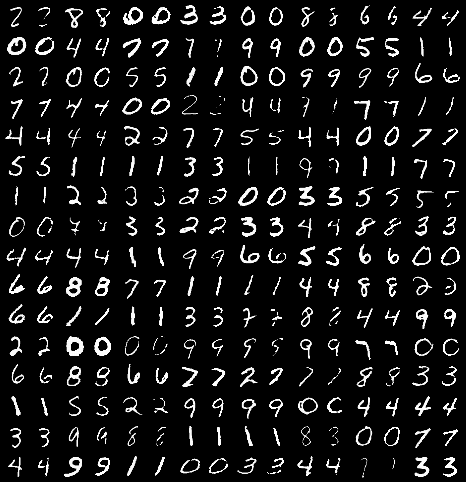 2 2 8 8 0 0 3 3 0 0 8 8 6 6 4 4
0 0 4 4 7 7 7 7 9 9 0 0 5 5 1 1
2 2 0 0 5 5 1 1 0 0 9 9 9 9 6 6
7 7 4 4 0 0 2 2 4 4 7 7 1 1
4 4 4 4 2 2 7 7 5 5 4 4 0 0 7 7
5 5 1 1 1 1 3 3 1 1 9 9 1 1 7 7
1 1 2 2 3 3 2 2 0 0 3 3 5 5 5 5
0 0 3 3 2 2 3 3 4 4 8 8 3 3
4 4 4 4 1 1 9 9 6 6 5 5 6 6 0 0
6 6 8 8 7 7 1 1 1 1 4 4 8 8 2 2
6 6 1 1 1 1 3 3 7 7 8 8 4 4 9 9
2 2 0 0 0 0 9 9 9 9 9 9 7 7 0 0
6 6 8 8 6 6 2 2 2 2 7 7 8 8 3 3
1 1 5 5 2 2 9 9 9 9 0 0 4 4 4 4
3 3 9 9 8 8 1 1 1 1 8 3 0 0 7 7
4 4 9 9 1 1 0 0 3 3 4 4 3 3